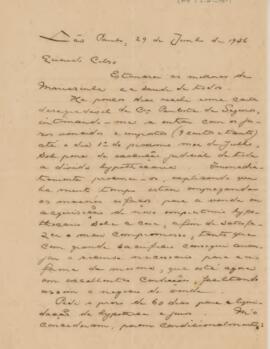 São Paulo, 29 de Junho de 1936
Querido Celso
Estimarei as melhoras de
e a saude de todos.
Ha poucos dias recebi uma carta
desagradavel da Cia Paulista de Seguros,
intimando-me a entrar com os juros
vencidos e impostos
até o dia 1º do proximo mez de Julho,
sob pena de execução judicial de toda
a divida hypothecaria. Immediata-
mente procurei-os, explicando que
ha muito tempo estou empregando
os maiores esforços para a venda ou
acquisição de novo compromisso hypo-
thecario sobre a casa, afim de satisfa-
zer o meu compromisso, tanto que
com grande sacrificio consegui
o dinheiro necessario para a re-
forma da mesma, que está agora
em excellentes condições, facilitando
assim o negocio de venda.
Pedi o prazo de 60 dias para a liqui-
dação da hypotheca e juros.
concederam, porém condicionalmente;